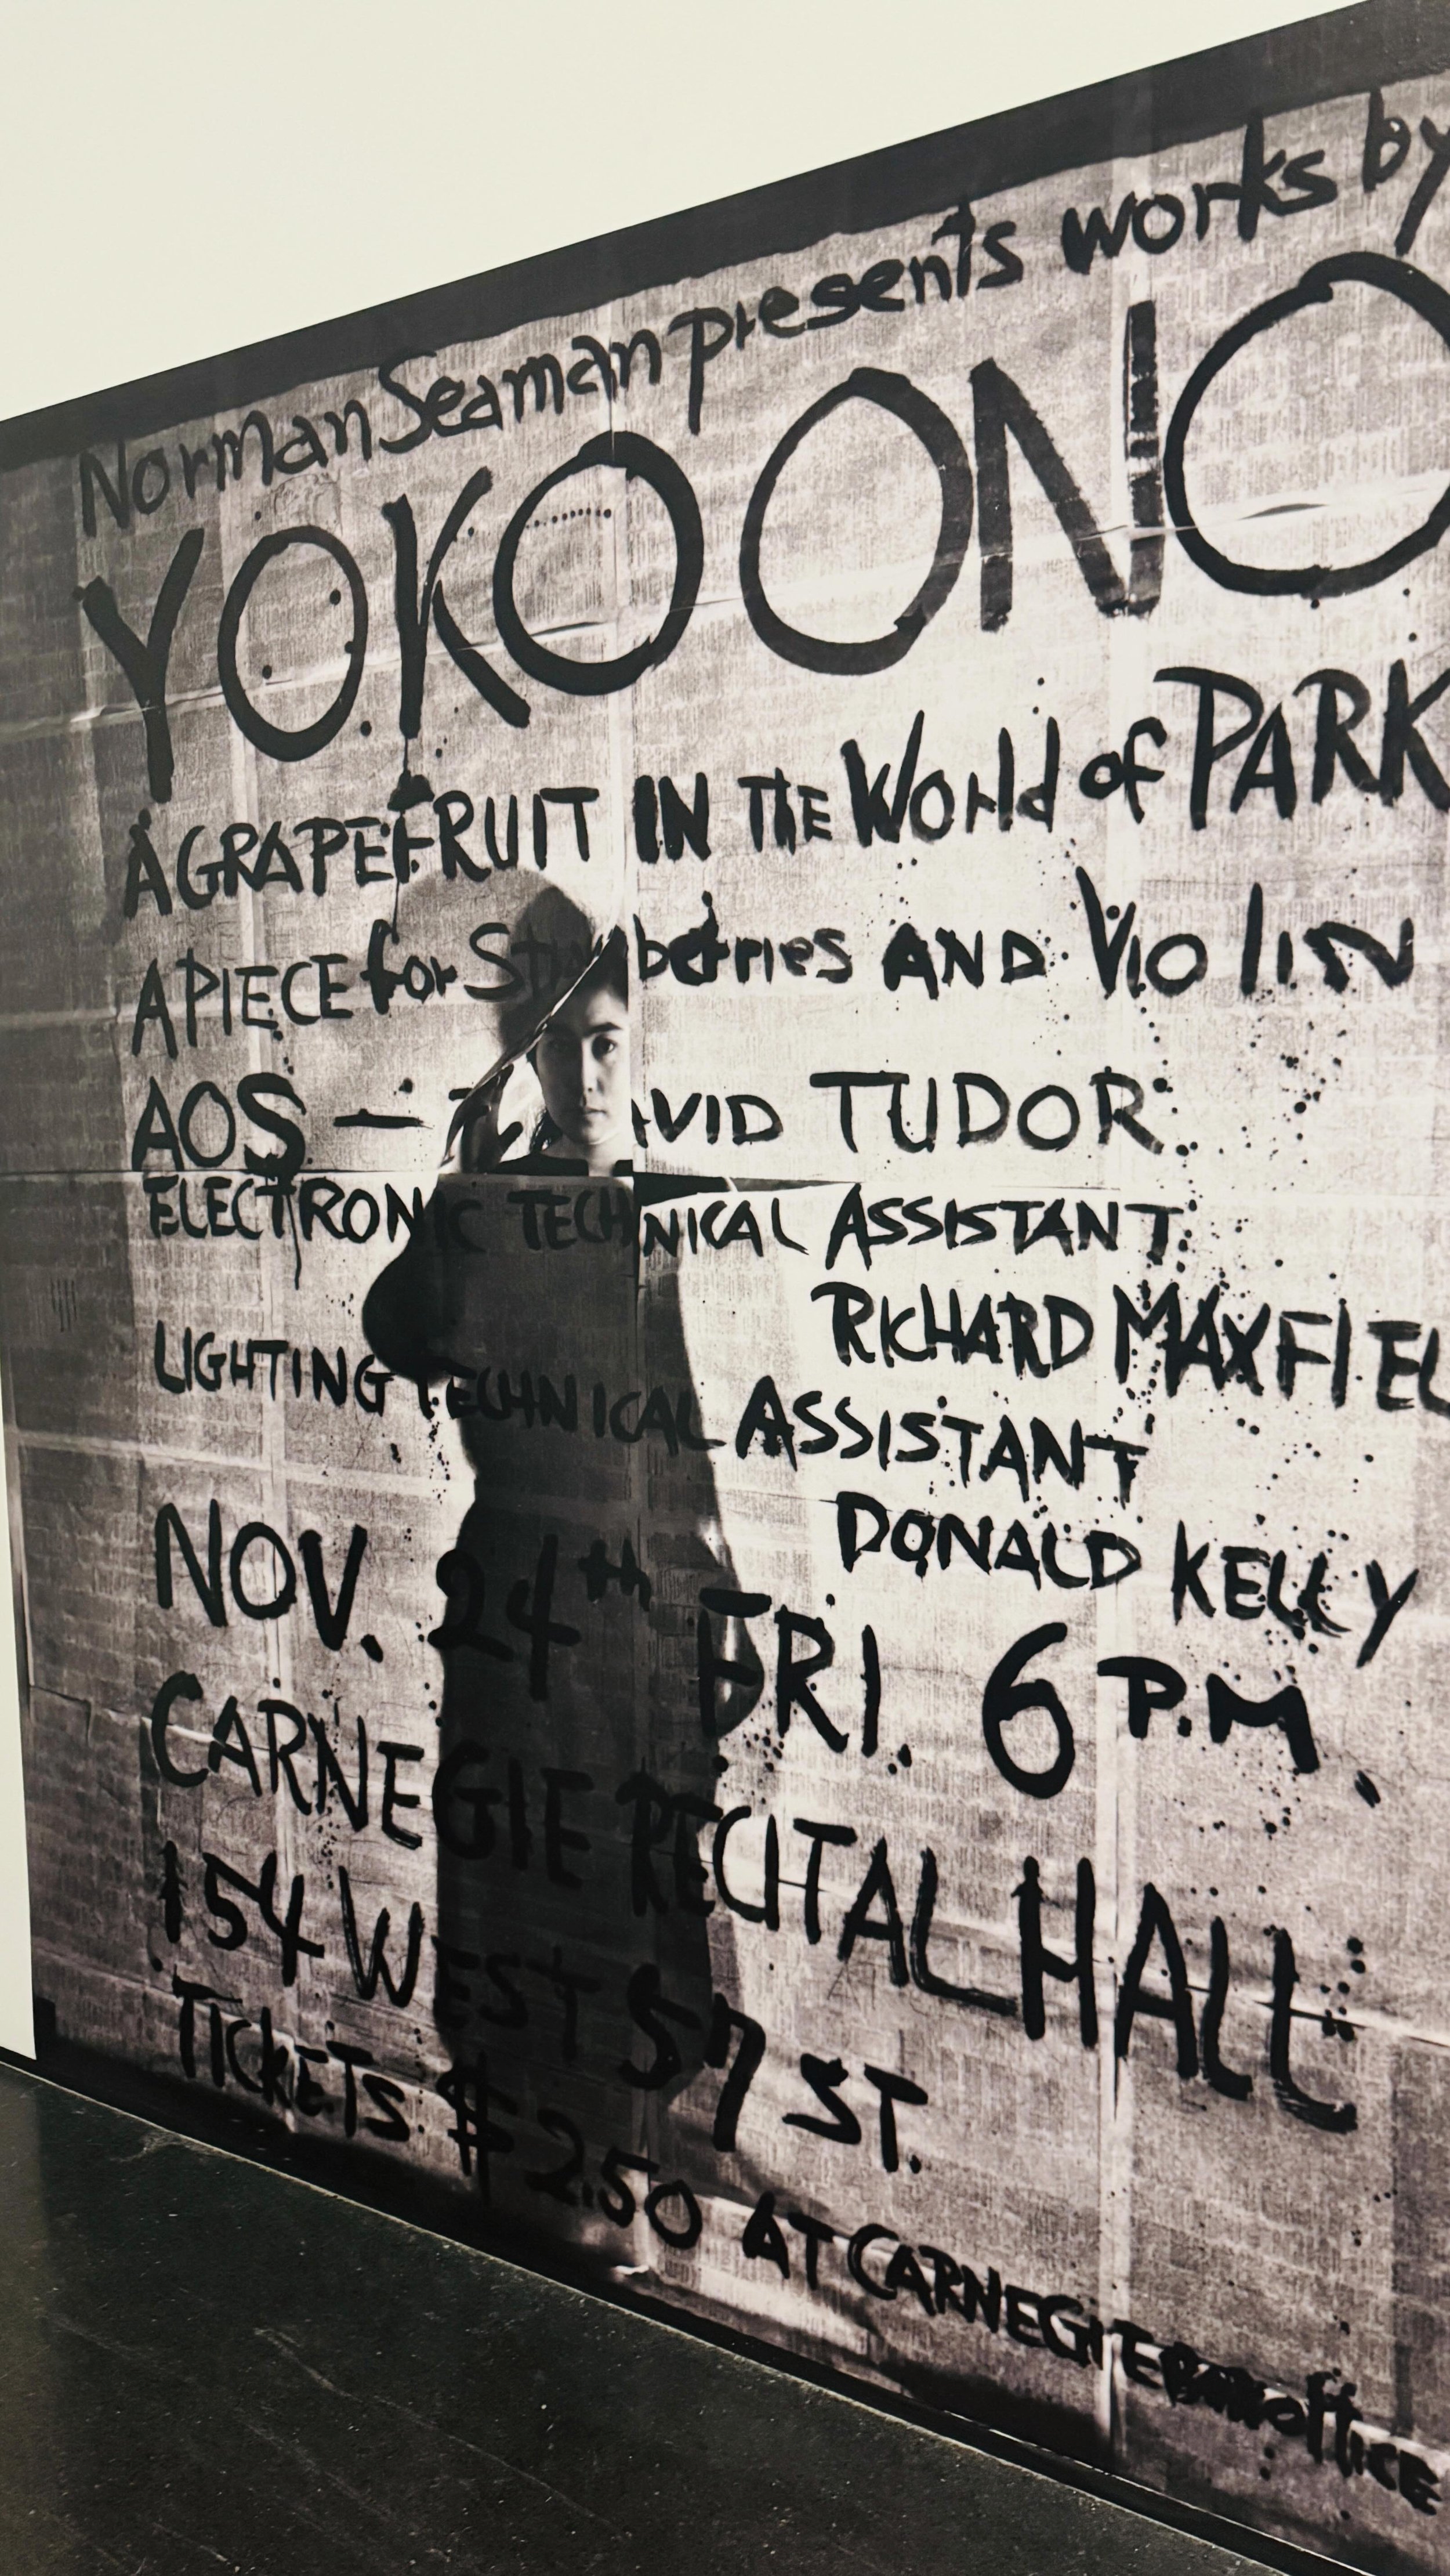 Norman Seaman presents works by
YOKO ONO
A GRAPEFRUIT IN THE WORLD of PARK
A PIECE for Strawberries AND VIOLIN
AOS — DAVID TUDOR
ELECTRONIC TECHNICAL ASSISTANT
RICHARD MAXFIEL
LIGHTING TECHNICAL ASSISTANT
DONALD KELLY
NOV. 24th FRI. 6 P.M.
CARNEGIE RECITAL HALL
154 WEST 57 ST.
TICKETS $2.50 AT CARNEGIE office